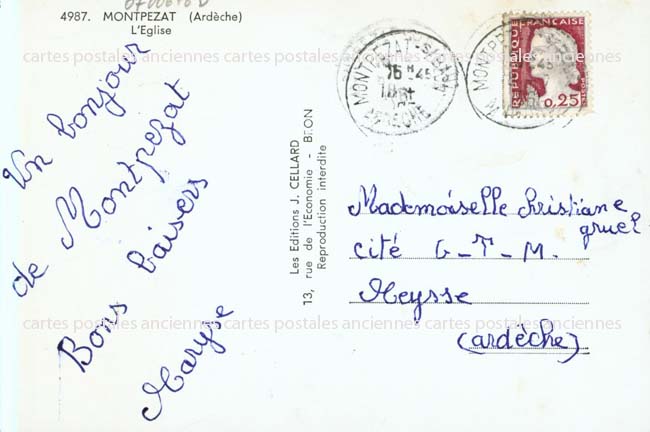 4987. MONTPEZAT (Ardèche)
L'Eglise
Un bonjour
de Montpezat
Bons baisers
Maryse
Les Editions J. CELLARD
13, rue de l'Economie - BRON
Reproduction interdite
MONTPEZAT-S/BAUZON
16 H 45
ARDECHE
MONTPE
REPUBLIQUE FRANÇAISE
0,25
Mademoiselle Christiane
gruel
cité G-T-M.
Meysse
(ardèche)
cartes postales anciennes cartes postales anciennes cartes postales anciennes
cartes postales anciennes cartes postales anciennes cartes postales anciennes